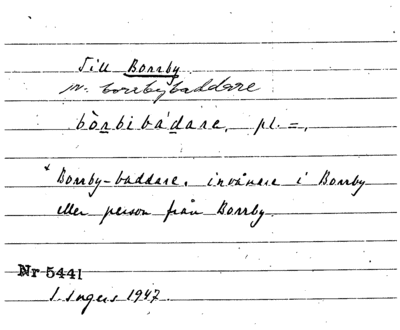 Till Borrby
m. borrbybaddare
bòrbibádare, pl. =,
* Borrby-baddare, invånare i Borrby
eller person från Borrby.
Nr 5441
S. Ingers 1947.